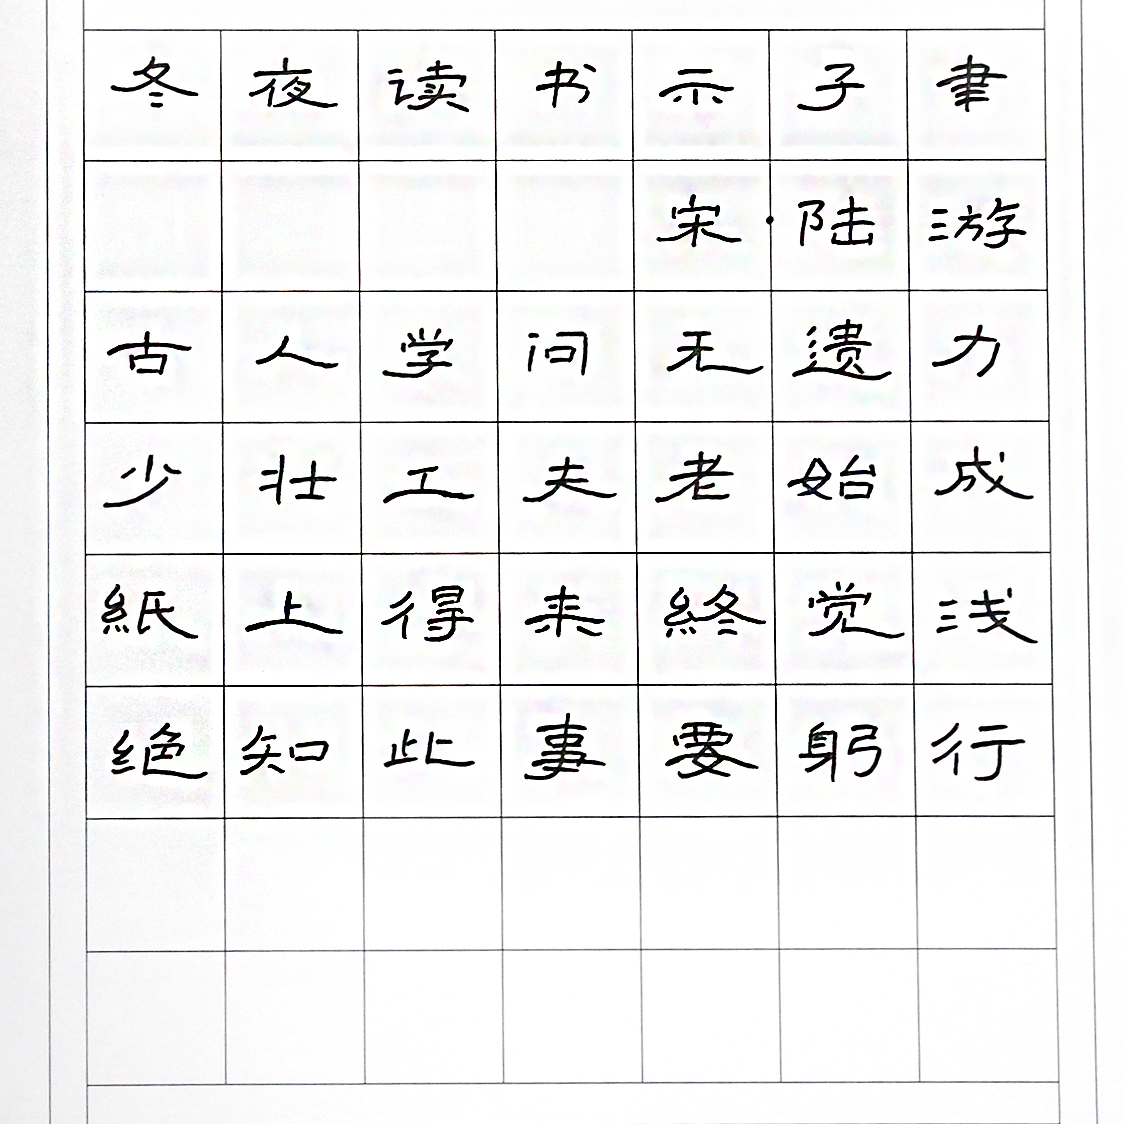 冬夜读书示子聿
宋·陆游
古人学问无遗力
少壮工夫老始成
紙上得来終觉浅
绝知此事要躬行